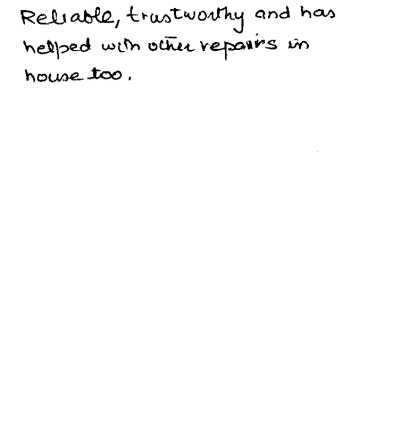 Reliable, trustworthy and has
helped with other repairs in
house too.